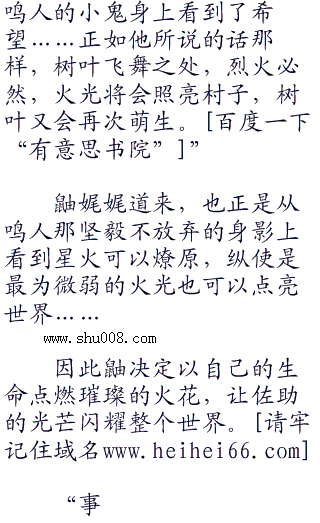 鸣人的小鬼身上看到了希
望……正如他所说的话那
样，树叶飞舞之处，烈火必
然，火光将会照亮村子，树
叶又会再次萌生。[百度一下
“有意思书院”]”
鼬娓娓道来，也正是从
鸣人那坚毅不放弃的身影上
看到星火可以燎原，纵使是
最为微弱的火光也可以点亮
世界……
www.shu008.com
因此鼬决定以自己的生
命点燃璀璨的火花，让佐助
的光芒闪耀整个世界。[请牢
记住域名www.heihei66.com]
“事